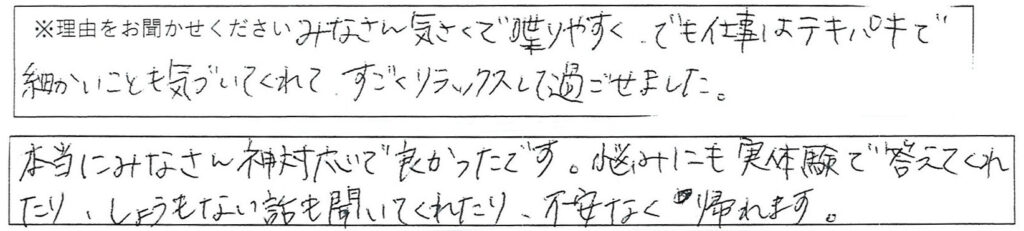 ※理由をお聞かせください みなさん気さくで喋りやすく、でも仕事はテキパキで
細かいことも気づいてくれて、すごくリラックスして過ごせました。
本当にみなさん神対応で良かったです。悩みにも実体験で答えてくれ
たり、しょうもない話も聞いてくれたり、不安なく帰れます。